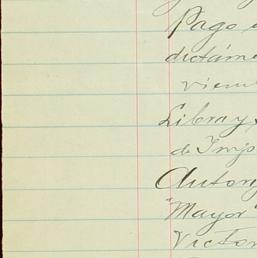 Pago
dictáme
vienu
Libra y
de Imp
Antony
"Mayor"
Victor